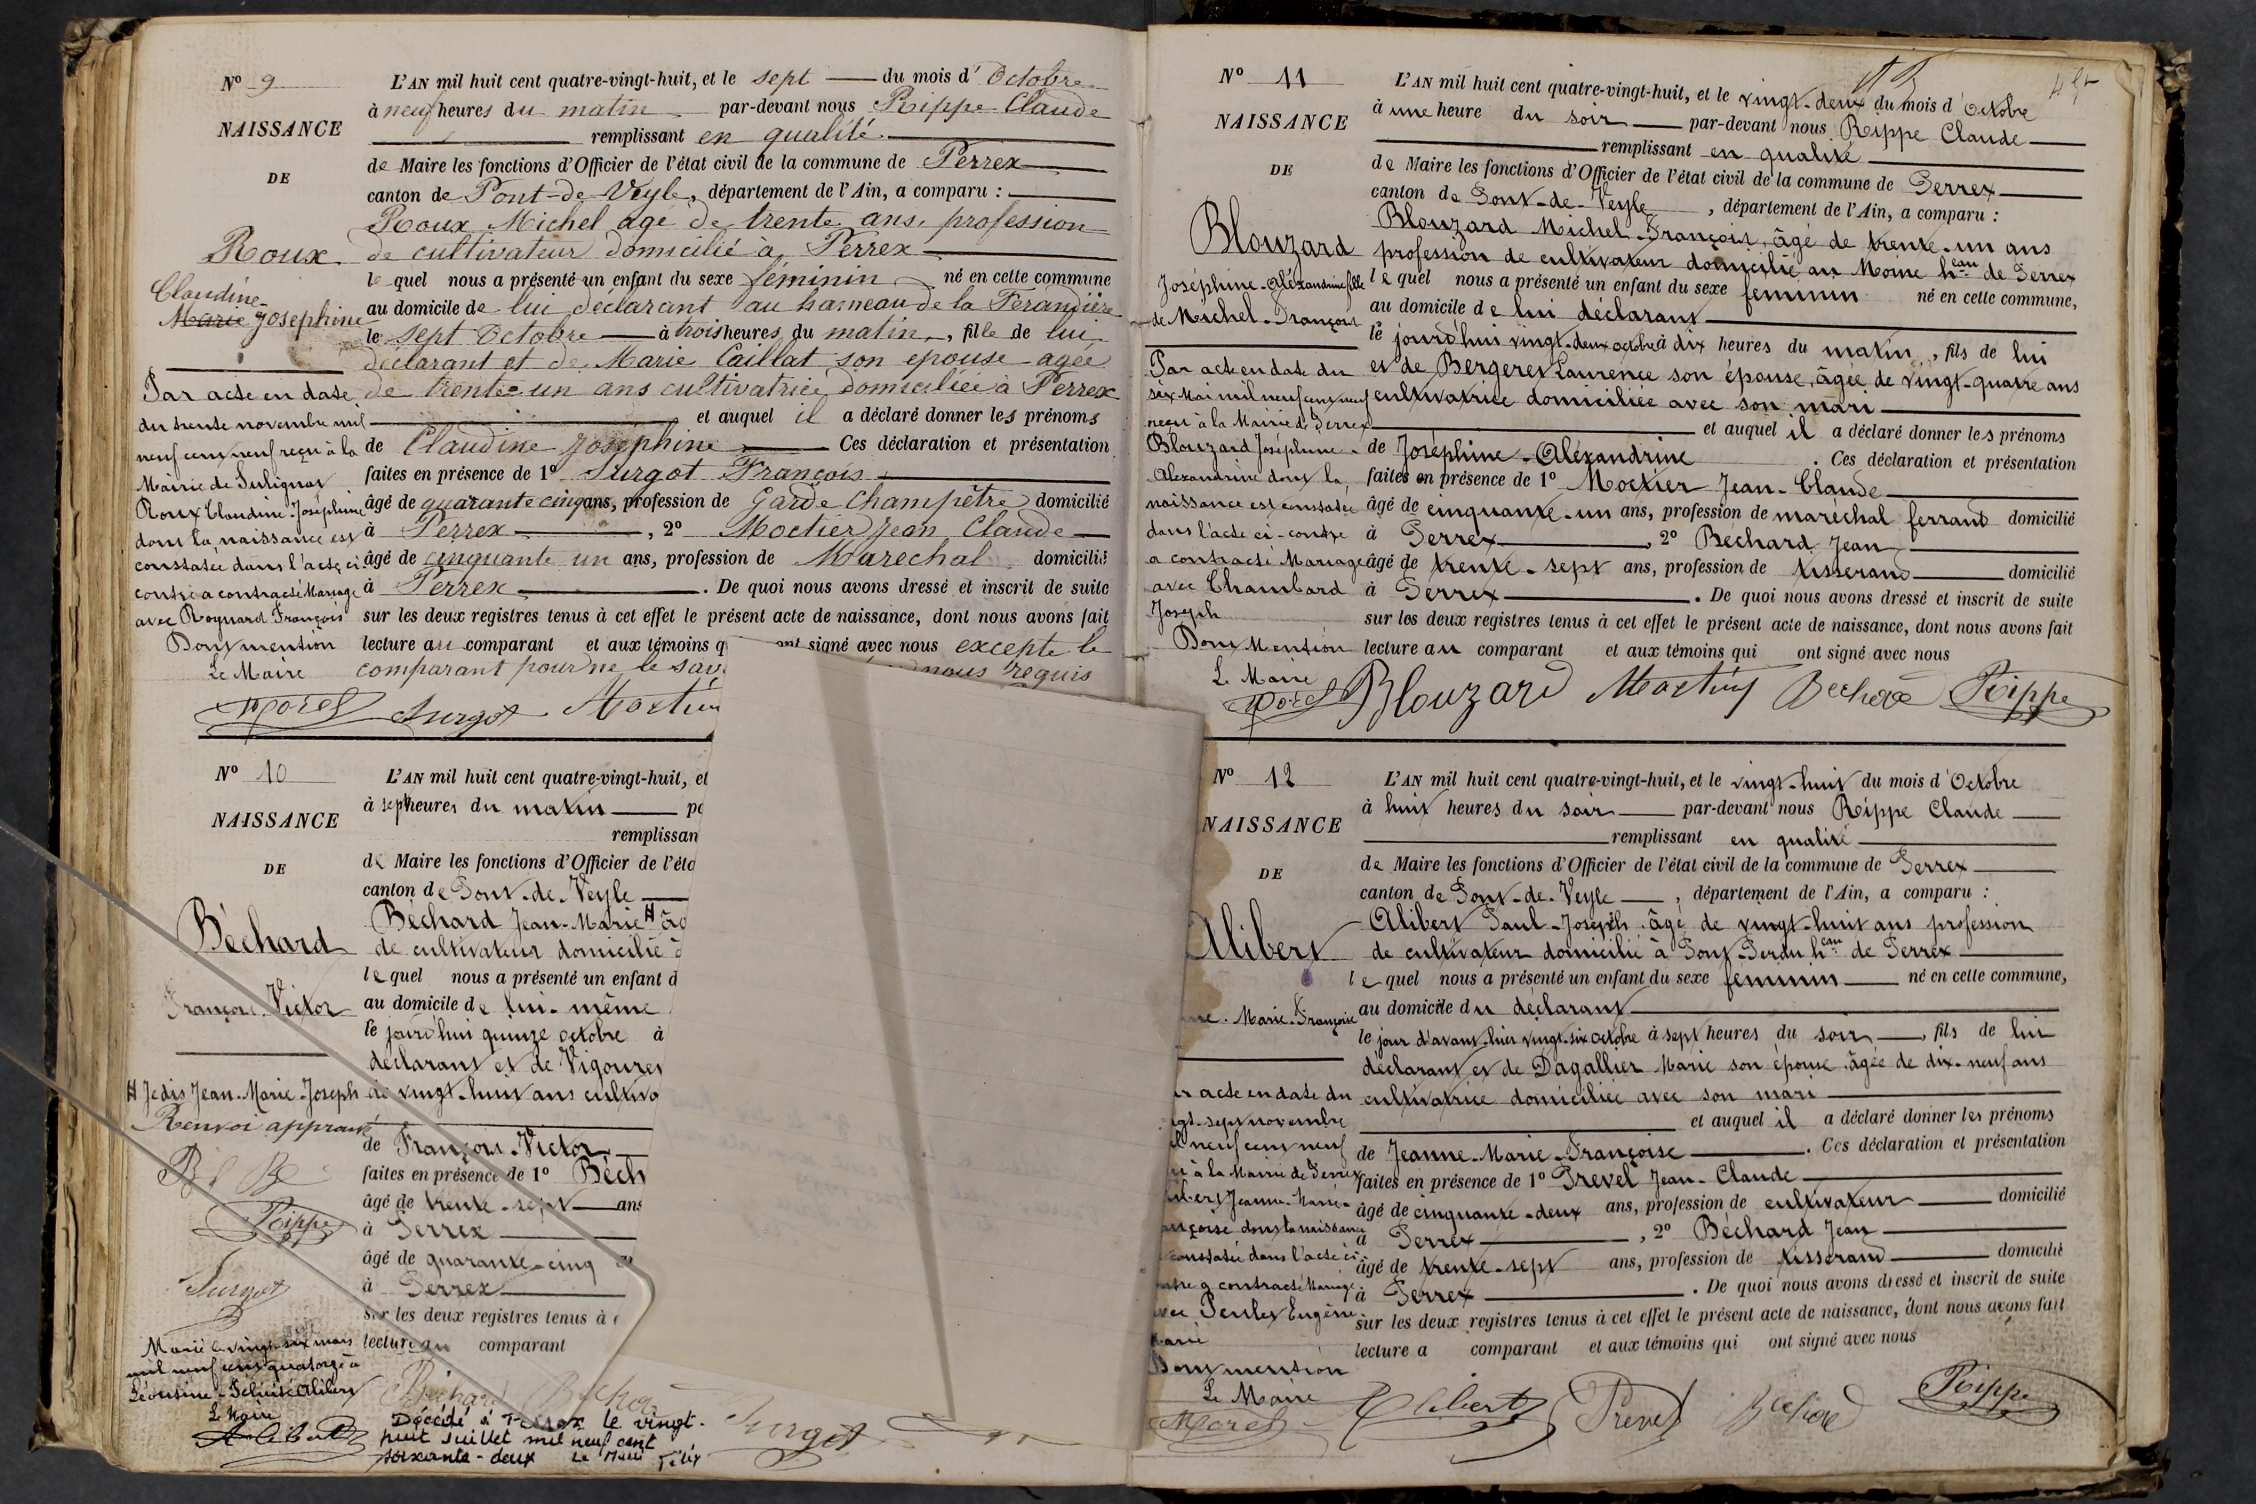 Nº 9
NAISSANCE
DE
Roux
Claudine-
Marie Joséphine
Par acte en date
du trente novembre mil
neuf cent neuf reçu à la
Mairie de
Roux Claudine-Joséphine
dont la naissance est
constatée dans l'acte ci-
contre a contracté Mariage
avec Roynard François
Dont mention
Le Maire
Morel
L'AN mil huit cent quatre-vingt-huit, et le sept du mois d'Octobre
à neuf heures du matin par-devant nous Rippe Claude
remplissant en qualité
de Maire les fonctions d'Officier de l'état civil de la commune de Perrex
canton de Pont-de-Veyle, département de l'Ain, a comparu :
Roux Michel age de trente ans, profession
de cultivateur domicilié à Perrex
le quel nous a présenté un enfant du sexe féminin né en cette commune
au domicile de lui déclarant au hameau de la Ferandière
le sept Octobre à trois heures du matin, fille de lui
déclarant et de Marie Caillat son épouse agée
de trente-un ans cultivatrice domiciliée à Perrex
et auquel il a déclaré donner les prénoms
de Claudine Joséphine Ces déclaration et présentation
faites en présence de 1º Surgot François
âgé de quarante cinq ans, profession de Garde Champêtre domicilié
à Perrex, 2º Moctier Jean Claude
âgé de cinquante un ans, profession de Marechal domicilié
à Perrex. De quoi nous avons dressé et inscrit de suite
sur les deux registres tenus à cet effet le présent acte de naissance, dont nous avons fait
lecture au comparant et aux témoins q ont signé avec nous excepté le
comparant pour ne le sav nous requis
Surgot
Nº 10
NAISSANCE
DE
Béchard
François-Victor
H Je dis Jean-Marie-Joseph
Renvoi approuvé
Rippe
Surgot
Marié le vingt-six mars
mil neuf cent quatorze à
Alibert
Le Maire
L'AN mil huit cent quatre-vingt-huit, et
à sept heures du matin
remplissan
de Maire les fonctions d'Officier de l'éta
canton de Pont-de-Veyle
Béchard Jean-Marie H âg
de cultivateur domicilié à
le quel nous a présenté un enfant d
au domicile de lui-même
le jourd'hui quinze octobre à
déclarant et de Vigoure
de vingt-huit ans cultiva
de François-Victor
faites en présence de 1º Béch
âgé de trente-sept ans
à Perrex
âgé de quarante-cinq
à Perrex
sur les deux registres tenus à
lecture au comparant
Surgot
Décédé à Perrex le vingt-
huit Juillet mil neuf cent
soixante-deux Le Maire
Nº 11
NAISSANCE
DE
Blouzard
Joséphine-Aléxandrine fille
de Michel-François
Par acte en date du
six Mai mil neuf cent neuf
reçu à la Mairie de Perrex
Blouzard Joséphine-
Alexandrine dont la
naissance est constatée
dans l'acte ci-contre
a contracté Mariage
avec Chambard
Joseph
Dont Mention
Le Maire
Morel
L'AN mil huit cent quatre-vingt-huit, et le vingt-deux du mois d'Octobre
à une heure du soir par-devant nous Rippe Claude
remplissant en qualité
de Maire les fonctions d'Officier de l'état civil de la commune de Perrex
canton de Pont-de-Veyle, département de l'Ain, a comparu :
Blouzard Michel-François, âgé de trente-un ans
profession de cultivateur domicilié au Moine heau de Perrex
le quel nous a présenté un enfant du sexe feminin né en cette commune,
au domicile de lui déclarant
le jourd'hui vingt-deux octobre à dix heures du matin, fils de lui
et de Bergeret Laurence son épouse, âgée de vingt-quatre ans
cultivatrice domiciliée avec son mari
et auquel il a déclaré donner les prénoms
de Joséphine-Aléxandrine. Ces déclaration et présentation
faites en présence de 1º Moctier Jean-Claude
âgé de cinquante-un ans, profession de maréchal ferrant domicilié
à Perrex, 2º Béchard Jean
âgé de trente-sept ans, profession de tisserand domicilié
à Perrex. De quoi nous avons dressé et inscrit de suite
sur les deux registres tenus à cet effet le présent acte de naissance, dont nous avons fait
lecture au comparant et aux témoins qui ont signé avec nous
Blouzard Bechard Rippe
Nº 12
NAISSANCE
DE
Alibert
Marie-Françoise
acte en date du
sept novembre
neuf cent neuf
à la Mairie de Perrex
Jeanne-Marie-
dont la naissance
constatée dans l'acte ci-
a contracté Mariage
Eugène
Dont mention
Le Maire
Morel
L'AN mil huit cent quatre-vingt-huit, et le vingt-huit du mois d'Octobre
à huit heures du soir par-devant nous Rippe Claude
remplissant en qualité
de Maire les fonctions d'Officier de l'état civil de la commune de Perrex
canton de Pont-de-Veyle, département de l'Ain, a comparu :
Alibert Paul-Joseph, âgé de vingt-huit ans profession
de cultivateur domicilié à Pont-Perdu heau de Perrex
le quel nous a présenté un enfant du sexe feminin né en cette commune,
au domicile du déclarant
le jour d'avant-hier vingt-six octobre à sept heures du soir, fils de lui
déclarant et de Dagallier Marie son épouse, âgée de dix-neuf ans
cultivatrice domiciliée avec son mari
et auquel il a déclaré donner les prénoms
de Jeanne-Marie-Françoise. Ces déclaration et présentation
faites en présence de 1º Prevel Jean-Claude
âgé de cinquante-deux ans, profession de cultivateur domicilié
à Perrex, 2º Béchard Jean
âgé de trente-sept ans, profession de tisserand domicilié
à Perrex. De quoi nous avons dressé et inscrit de suite
sur les deux registres tenus à cet effet le présent acte de naissance, dont nous avons fait
lecture a comparant et aux témoins qui ont signé avec nous
Alibert Prevel Bechard Rippe